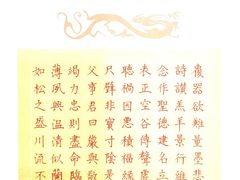 覆器欲難量墨悲
詩讚羔羊景行維
念作聖德建名立
表正空谷傳聲虛
聽禍因惡積福緣
尺璧非寶寸陰是
父事君曰嚴與敬
竭力忠則盡命臨
薄夙興溫清似蘭
如松之盛川流不